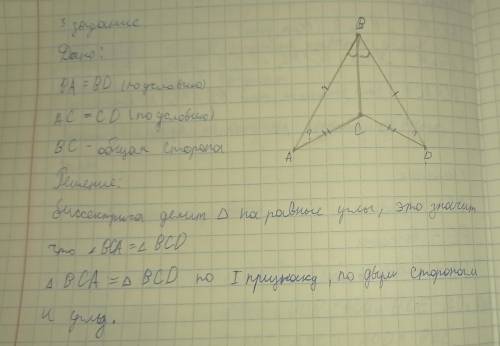 3 задание
Дано:
BA = BD (по условию)
AC = CD (по условию)
BC - общая сторона
Решение:
биссектриса делит △ на равные углы, это значит
что △BCA = △BCD
△BCA = △BCD по I признаку, по двум сторонам
и углу.
B
C
A
D
?
?